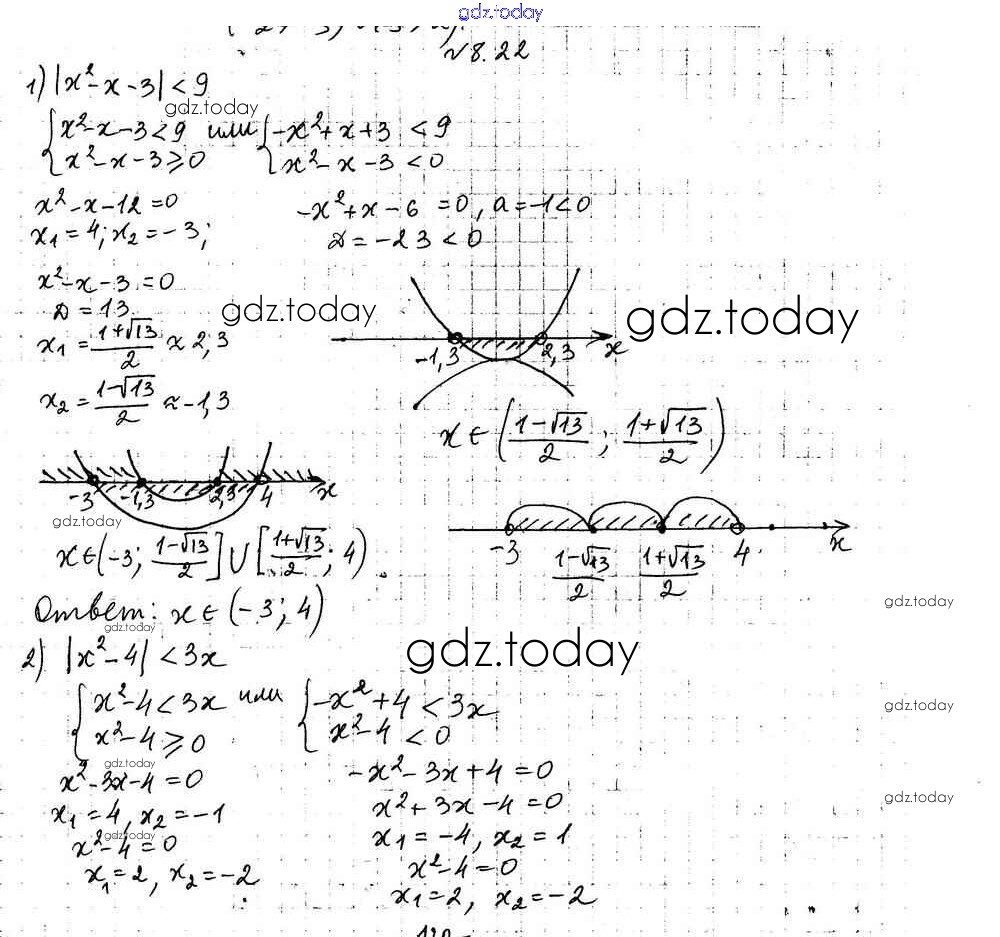 gdz.today
№ 8.22
1) |x²-x-3| < 9
gdz.today
{x²-x-3<9 или {-x²+x+3 <9
{x²-x-3≥0 {x²-x-3<0
x²-x-12=0
x₁=4; x₂=-3;
-x²+x-6=0, a=-1<0
D=-23<0
x²-x-3=0
D=13
x₁=(1+√13)/2 ≈ 2,3
x₂=(1-√13)/2 ≈ -1,3
gdz.today
gdz.today
-1,3 2,3 x
x∈((1-√13)/2; (1+√13)/2)
-3 -1,3 2,3 4 x
gdz.today
x∈(-3; (1-√13)/2] ∪ [(1+√13)/2; 4).
-3 (1-√13)/2 (1+√13)/2 4 x
gdz.today
Ответ: x∈(-3; 4)
gdz.today
2) |x²-4| <3x
gdz.today
{x²-4<3x или {-x²+4<3x
{x²-4≥0 {x²-4<0
gdz.today
gdz.today
x²-3x-4=0
x₁=4, x₂=-1
gdz.today
x²-4=0
x₁=2, x₂=-2
-x²-3x+4=0
x²+3x-4=0
x₁=-4, x₂=1
x²-4=0
x₁=2, x₂=-2
gdz.today